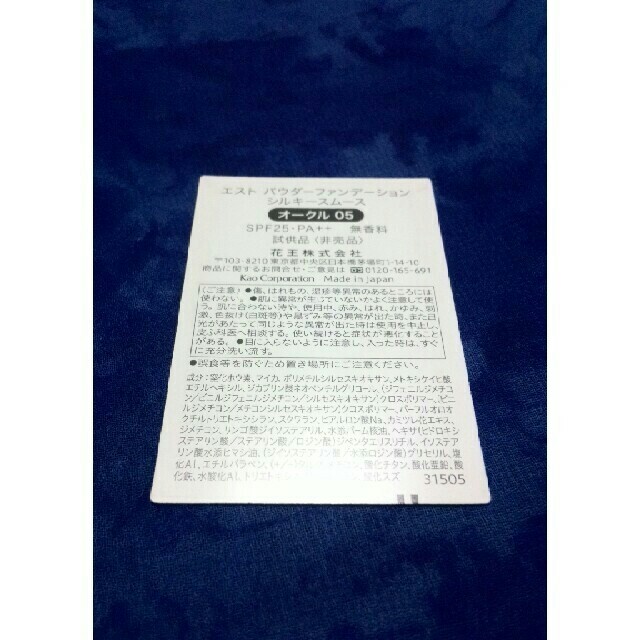 エスト パウダーファンデーション
シルキースムース
オークル 05
SPF25・PA++ 無香料
試供品(非売品)
花王株式会社
〒103-8210 東京都中央区日本橋茅場町1-14-10
商品に関するお問合せ・ご意見は 0120-165-691
Kao Corporation Made in Japan
〈ご注意〉●傷、はれもの、湿疹等異常のあるところには
使わない。●肌に異常が生じていないかよく注意して使
う。肌に合わない時や、使用中、赤み、はれ、かゆみ、刺
激、色抜け(白斑等)や黒ずみ等の異常が出た時、また日
光があたって同じような異常が出た時は使用を中止し、
皮ふ科医へ相談する。使い続けると症状が悪化することが
ある。●目に入らないように注意し、入った時は、すぐ
に充分洗い流す。
●誤食等を防ぐため置き場所にご注意ください。
成分:窒化ホウ素、マイカ、ポリメチルシルセスキオキサン、メトキシケイヒ酸
エチルヘキシル、ジカプリン酸ネオペンチルグリコール、(ジフェニルジメチコ
ン/ビニルジフェニルジメチコン/シルセスキオキサン)クロスポリマー、(ビニ
ルジメチコン/メチコンシルセスキオキサン)クロスポリマー、パーフルオロオ
クチルトリエトキシシラン、スクワラン、ヒアルロン酸Na、カミツレ花エキス、
ジメチコン、リンゴ酸ジイソステアリル、水添パーム核油、ヘキサ(ヒドロキシ
ステアリン酸/ステアリン酸/ロジン酸)ジペンタエリスリチル、イソステアリ
ン酸水添ヒマシ油、(ジイソステアリン酸/水添ロジン酸)グリセリル、塩
化Al、エチルパラベン、(+/-) 酸化チタン、酸化亜鉛、酸
化鉄、水酸化Al、トリエトキ 酸化スズ
31505